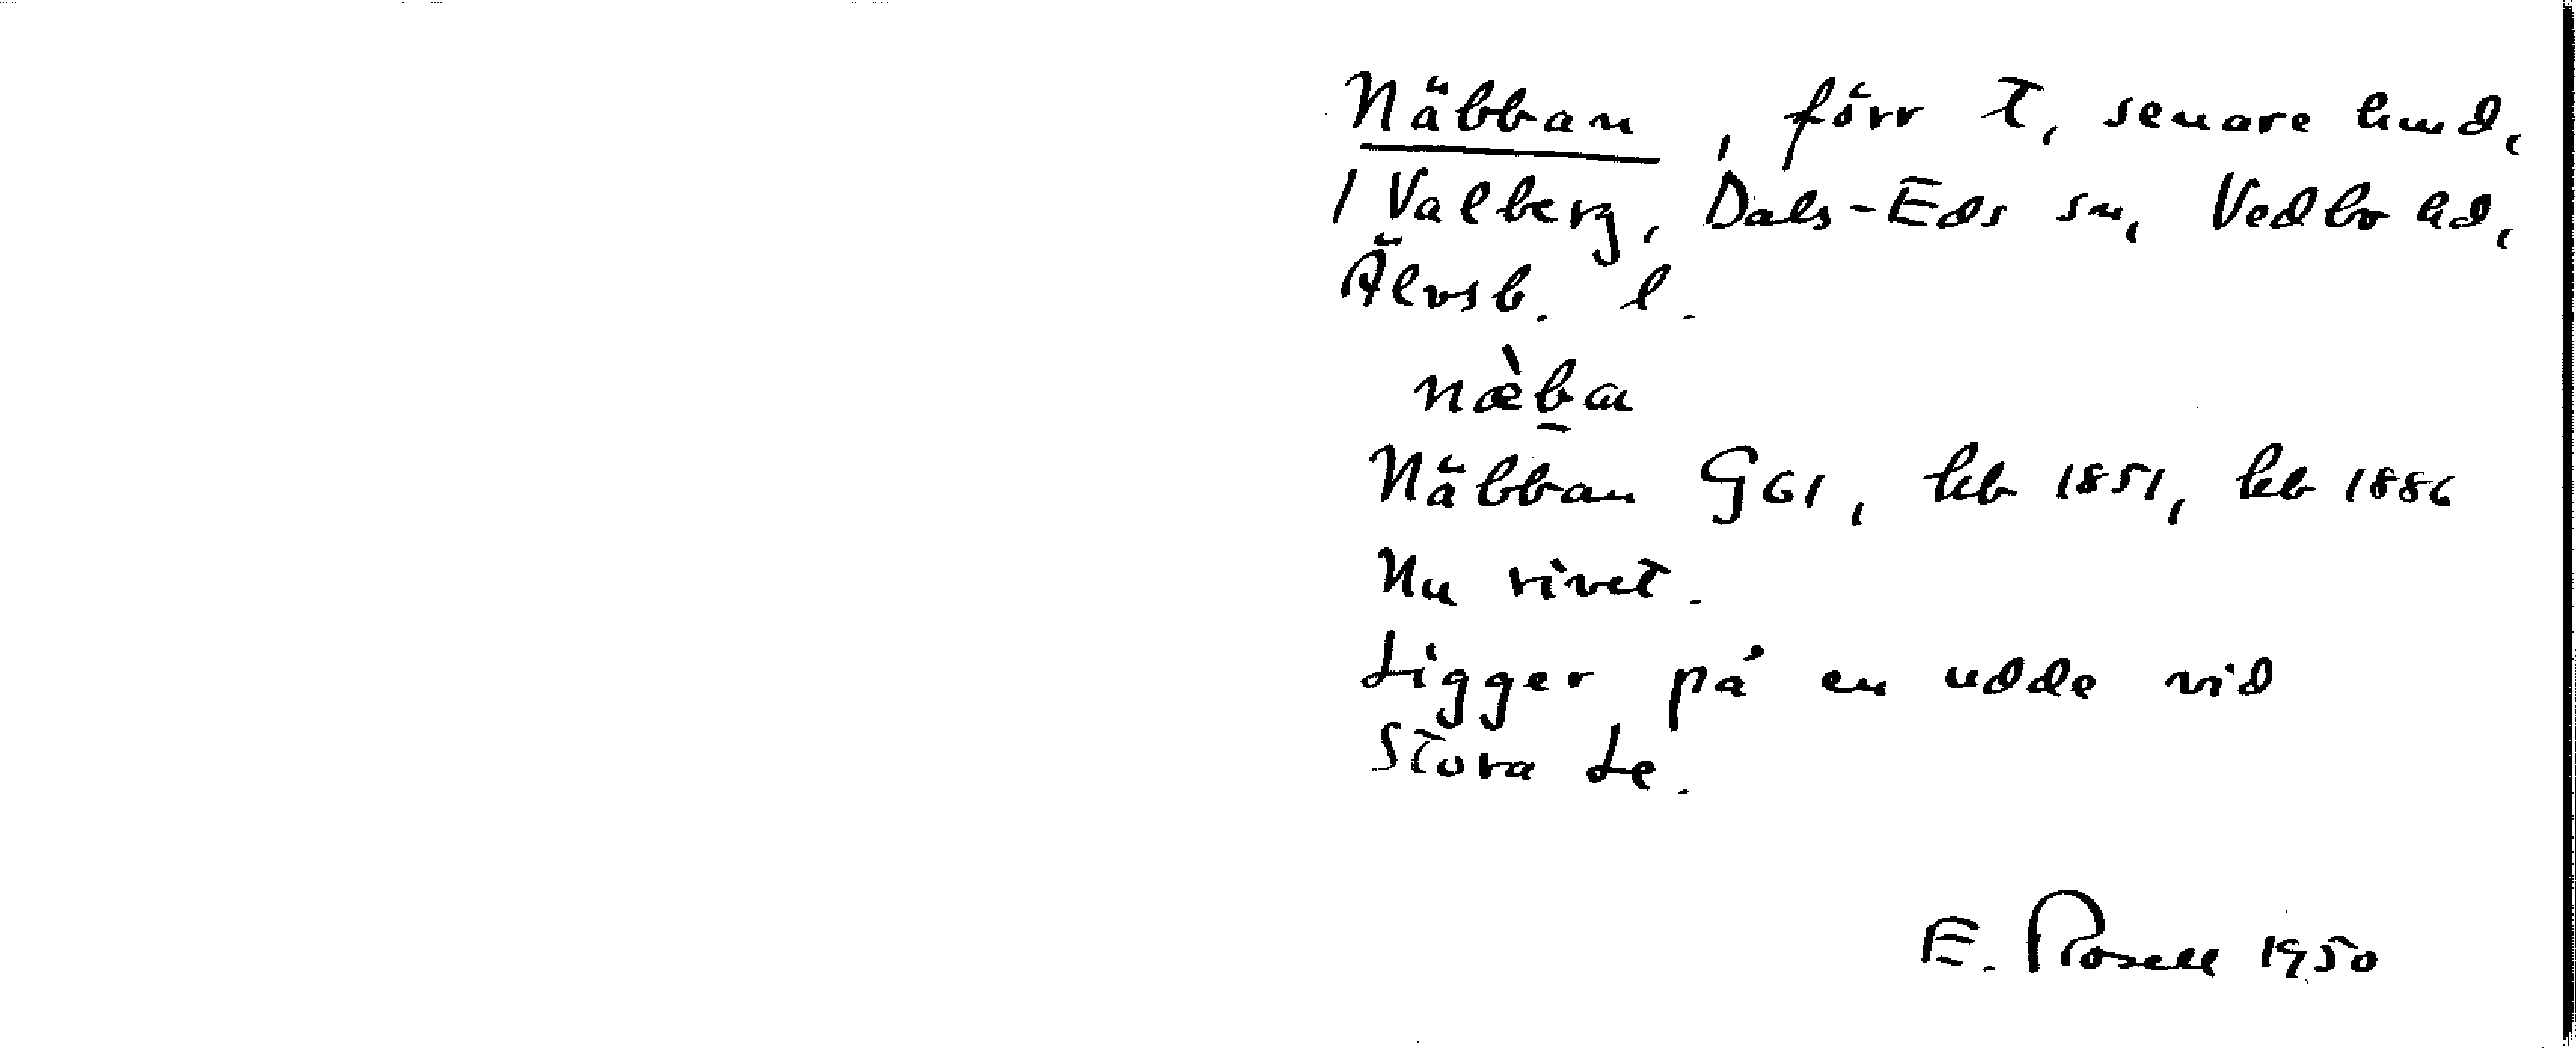 Näbban, förr t, senare hmd,
1 Valberg, Dals-Eds sn, Vedbo hd,
Älvsb. l.
næ̀b̠a
Näbban G61, kb 1851, kb 1886
Nu rivet.
Ligger på en udde vid
Stora Le.
E. Rosell 1950